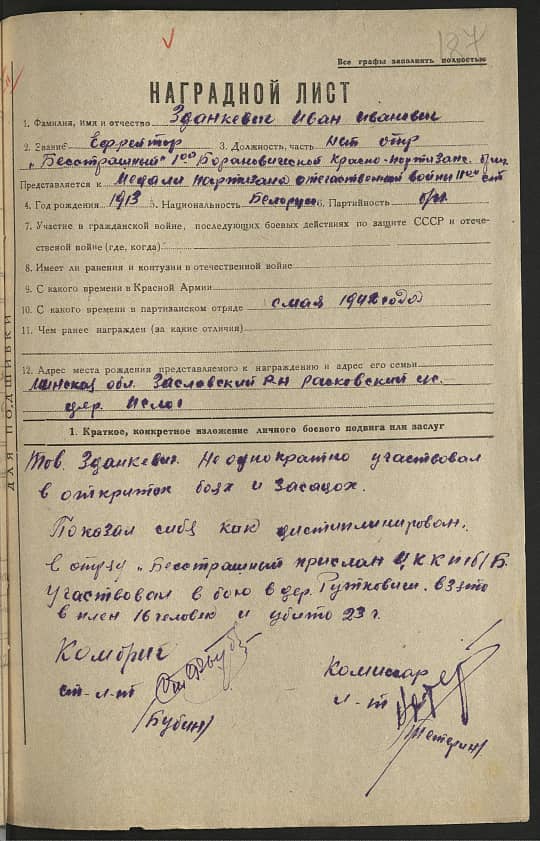 187
Все графы заполнять полностью
НАГРАДНОЙ ЛИСТ
1. Фамилия, имя и отчество Зданкевич Иван Иванович
2. Звание Ефрейтор 3. Должность, часть отр
„Бесстрашный" 1ой Барановической Красно-партизанс.
Представляется к Медали партизана отечественной войны IIой ст
4. Год рождения 1913 5. Национальность Белорус 6. Партийность б/п
7. Участие в гражданской войне, последующих боевых действиях по защите СССР и отече-
ственой войне (где, когда)
8. Имеет ли ранения и контузии в отечественной войне
9. С какого времени в Красной Армии
10. С какого времени в партизанском отряде с мая 1942 года
11. Чем ранее награжден (за какие отличия)
12. Адрес места рождения представляемого к награждению и адрес его семьи
Минская обл. Заславский р-н Раковский с/с.
дер.
1. Краткое, конкретное изложение личного боевого подвига или заслуг
Тов. Зданкевич. Неоднократно участвовал
в открыток боях и засадох.
Показал себя как дистиплинирован.
в отряд „Бесстрашный прислан ЦК КП(б)Б.
Участвовал в бою в дер. Рутковичи. взято
в плен 16 человек и убито 23 г.
Комбриг
ст-л-нт
/Бубин/
Комиссар
л-нт
/Тетерин/
ДЛЯ ПОДШИВКИ